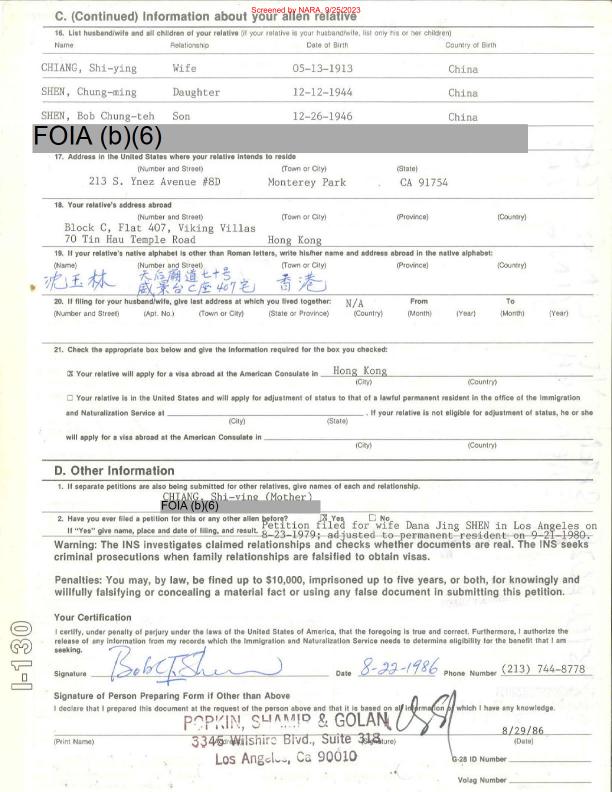 Screened by NARA, 9/25/2023
C. (Continued) Information about your alien relative
16. List husband/wife and all children of your relative (if your relative is your husband/wife, list only his or her children)
Name Relationship Date of Birth Country of Birth
CHIANG, Shi-ying Wife 05-13-1913 China
SHEN, Chung-ming Daughter 12-12-1944 China
SHEN, Bob Chung-teh Son 12-26-1946 China
FOIA (b)(6)
17. Address in the United States where your relative intends to reside
(Number and Street) (Town or City) (State)
213 S. Ynez Avenue #8D Monterey Park CA 91754
18. Your relative's address abroad
(Number and Street) (Town or City) (Province) (Country)
Block C, Flat 407, Viking Villas
70 Tin Hau Temple Road Hong Kong
19. If your relative's native alphabet is other than Roman letters, write his/her name and address abroad in the native alphabet:
(Name) (Number and Street) (Town or City) (Province) (Country)
沈玉林 天后廟道七十号 香港
威景台C座407宅
20. If filing for your husband/wife, give last address at which you lived together: N/A From To
(Number and Street) (Apt. No.) (Town or City) (State or Province) (Country) (Month) (Year) (Month) (Year)
21. Check the appropriate box below and give the information required for the box you checked:
☒ Your relative will apply for a visa abroad at the American Consulate in Hong Kong
(City) (Country)
☐ Your relative is in the United States and will apply for adjustment of status to that of a lawful permanent resident in the office of the Immigration
and Naturalization Service at . If your relative is not eligible for adjustment of status, he or she
(City) (State)
will apply for a visa abroad at the American Consulate in
(City) (Country)
D. Other Information
1. If separate petitions are also being submitted for other relatives, give names of each and relationship.
CHIANG, Shi-ying (Mother)
FOIA (b)(6)
2. Have you ever filed a petition for this or any other alien before? ☒ Yes ☐ No
If "Yes" give name, place and date of filing, and result. Petition filed for wife Dana Jing SHEN in Los Angeles on
8-23-1979; adjusted to permanent resident on 9-21-1980.
Warning: The INS investigates claimed relationships and checks whether documents are real. The INS seeks
criminal prosecutions when family relationships are falsified to obtain visas.
Penalties: You may, by law, be fined up to $10,000, imprisoned up to five years, or both, for knowingly and
willfully falsifying or concealing a material fact or using any false document in submitting this petition.
Your Certification
I certify, under penalty of perjury under the laws of the United States of America, that the foregoing is true and correct. Furthermore, I authorize the
release of any information from my records which the Immigration and Naturalization Service needs to determine eligibility for the benefit that I am
seeking.
Signature Bob T. Shen Date 8-22-1986 Phone Number (213) 744-8778
Signature of Person Preparing Form if Other than Above
I declare that I prepared this document at the request of the person above and that it is based on all information of which I have any knowledge.
POPKIN, SHAMIR & GOLAN
3345 Wilshire Blvd., Suite 318 8/29/86
(Print Name) (Address) (Signature) (Date)
Los Angeles, Ca 90010
G-28 ID Number
Volag Number
I-130